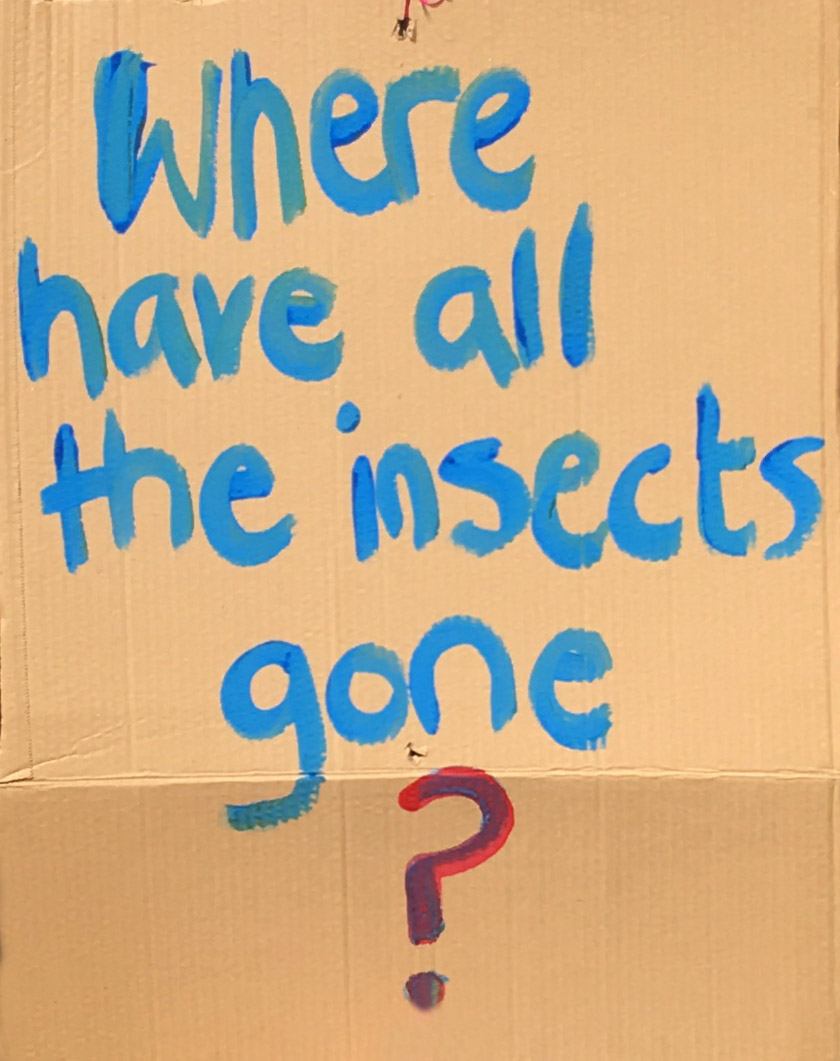 Where
have all
the insects
gone
?